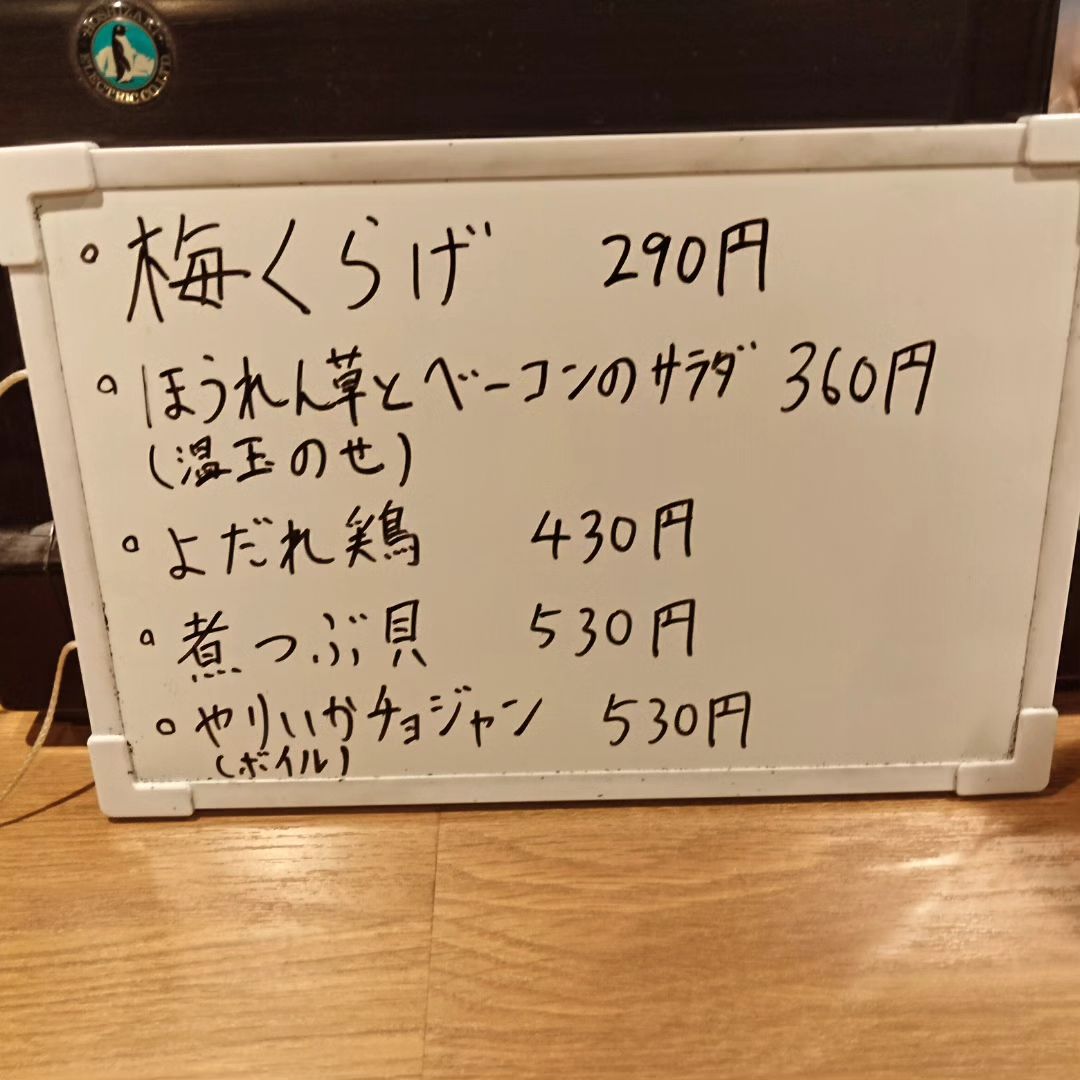 HOSHIZAKI
ELECTRIC CO.,LTD
。梅くらげ 290円
。ほうれん草とベーコンのサラダ 360円
(温玉のせ)
。よだれ鶏 430円
。煮つぶ貝 530円
。やりいかチョジャン 530円
(ボイル)